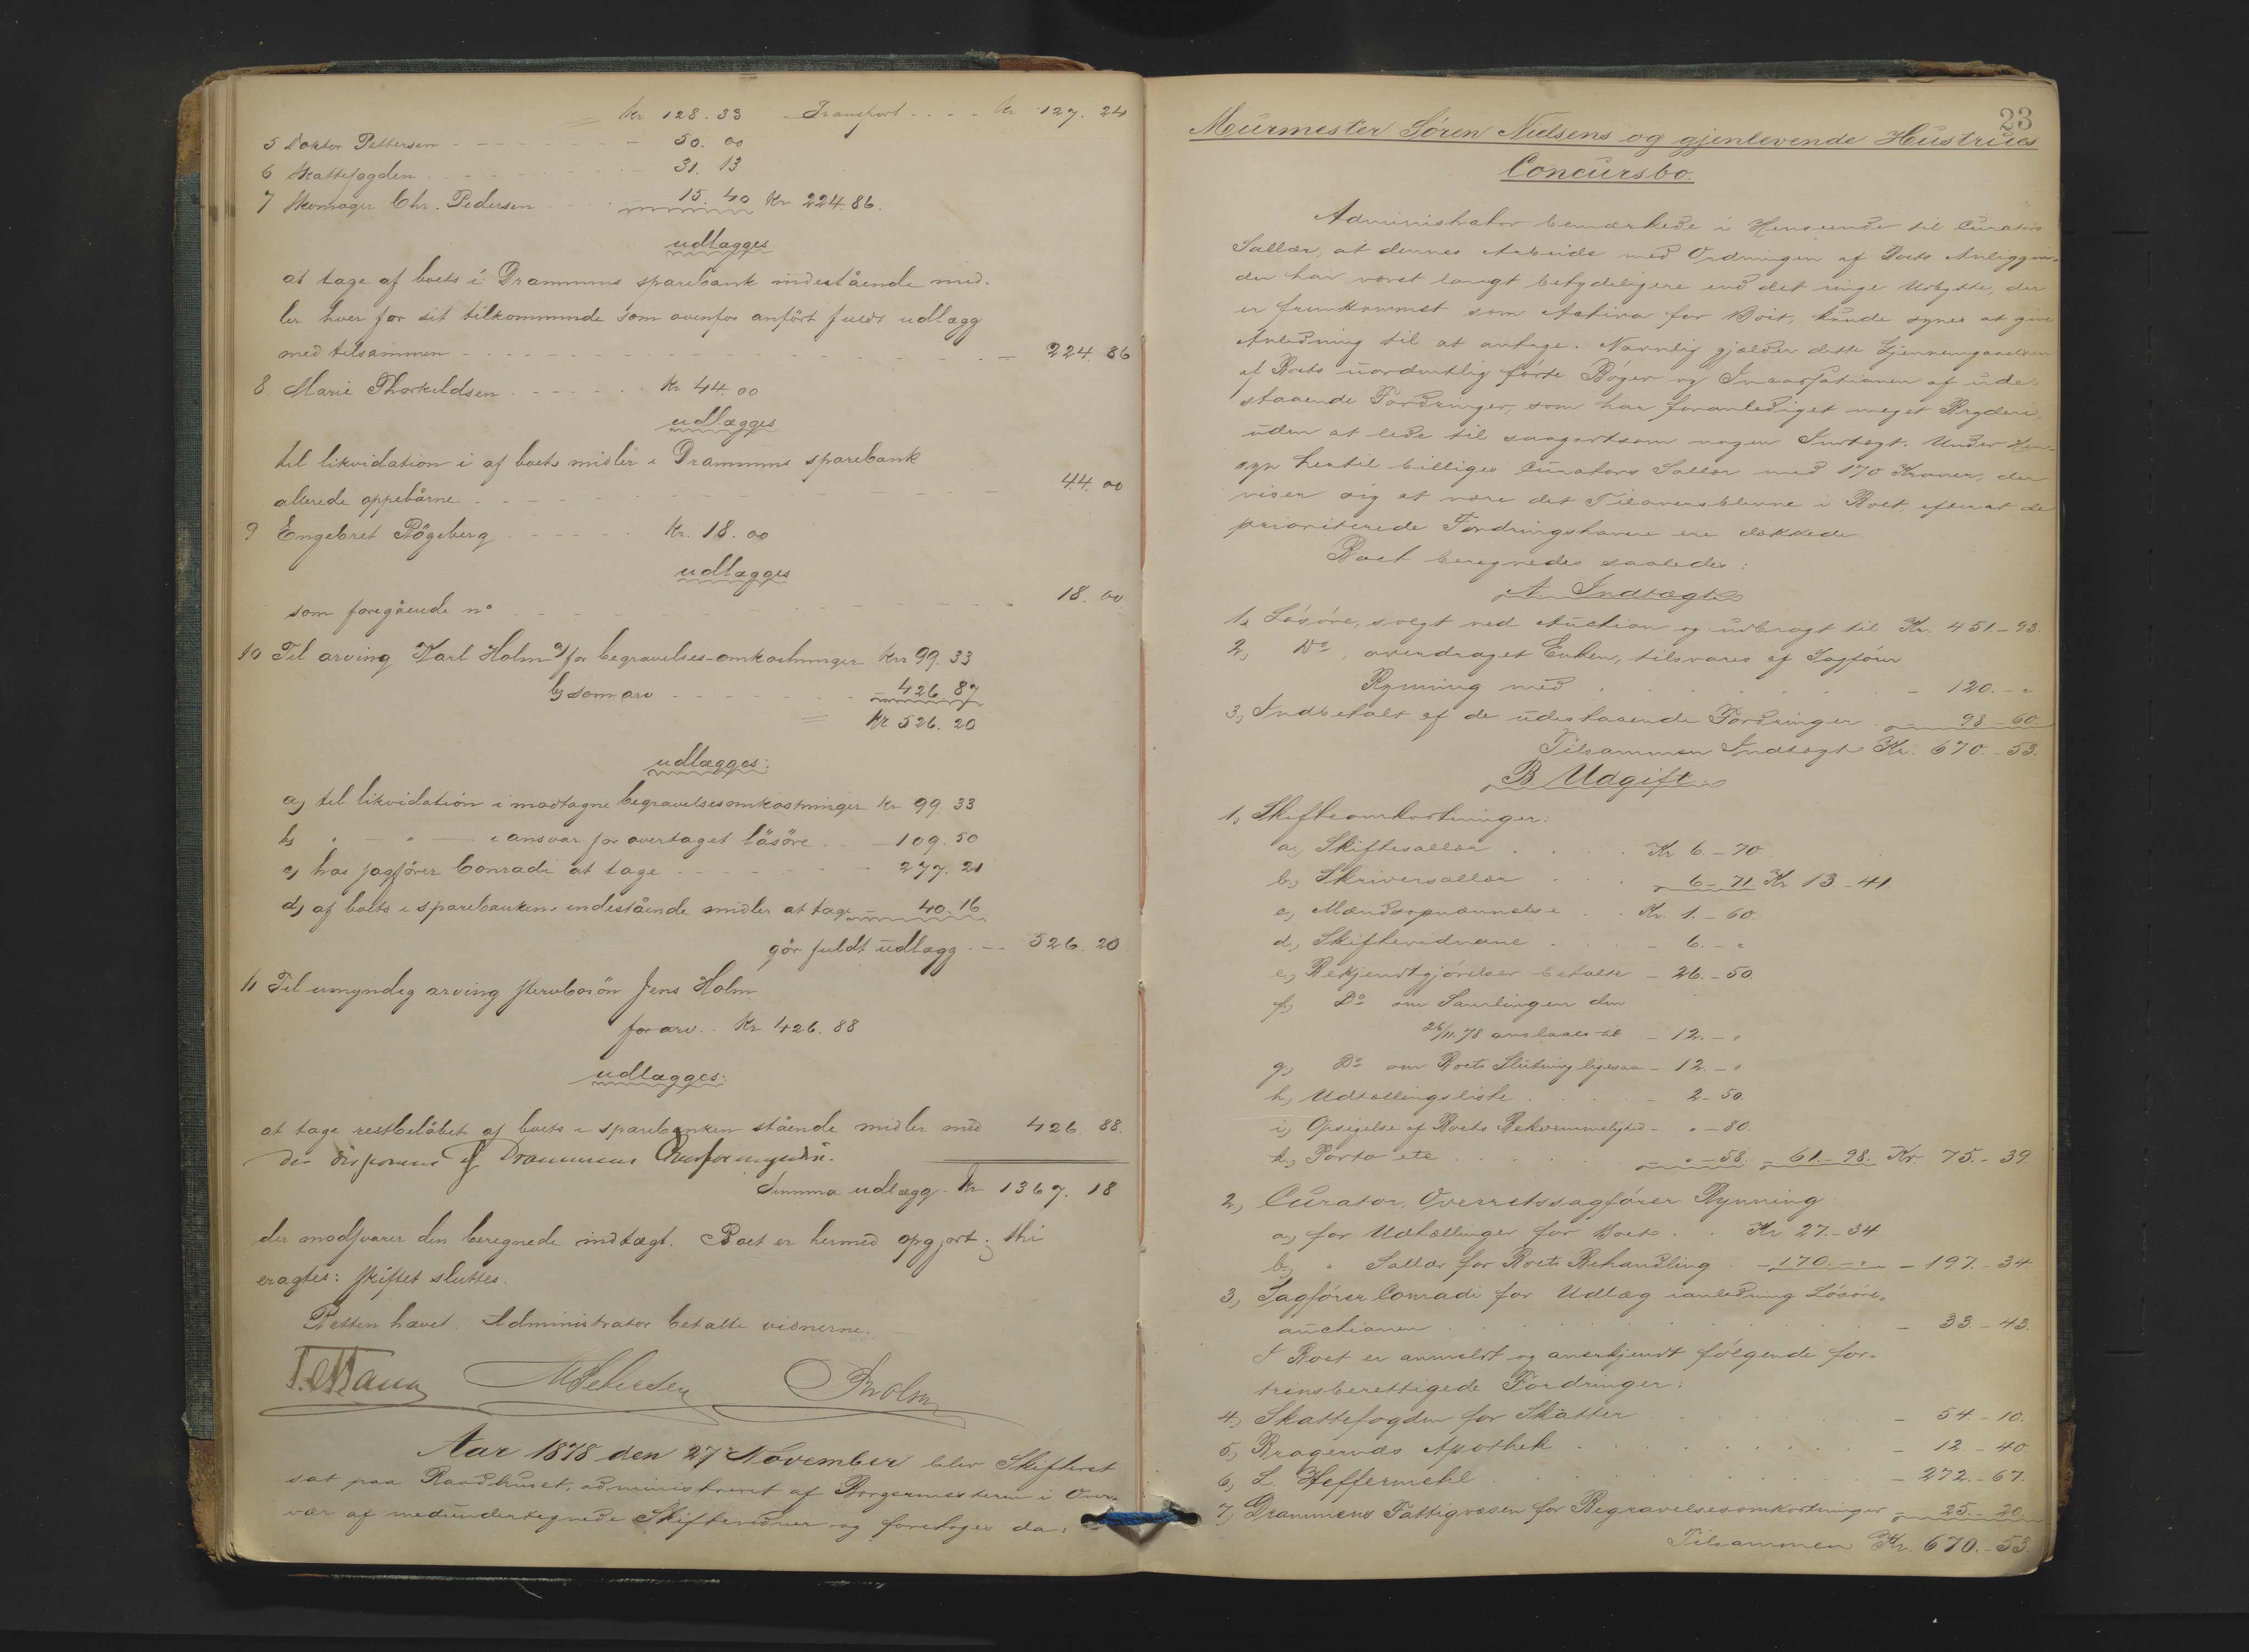 Kr 128.33 Transport .... Kr 127.24
5 Doktor Pettersen - - - - - - - 50.00
6 Skattefogden - - - - - - - 31.13
7 Skomager Chr. Pedersen - - - - 15.40 Kr 224.86.
udlægges
at tage af boets i Drammens sparebank indestående mid-
ler hver for sit tilkommende som ovenfor anført fuldt udlægg
med tilsammen - - - - - - - - - - - - 224.86
8 Marie Thorkildsen - - - - - Kr 44.00
udlægges
til likvidation i af boets midler i Drammens sparebank
allerede oppebårne - - - - - - - - - - - 44.00
9 Engebret Røgeberg - - - - - - Kr. 18.00
udlægges
som foregående no - - - - - - - - - - - 18.00
10 Til arving Karl Holm a) for begravelses-omkostninger Kr 99.33
b) som arv - - - - - - - 426.87
= Kr 526.20
udlægges:
a) til likvidation i modtagne begravelsesomkostninger Kr 99.33
b) " — " — i ansvar for overtaget løsøre - - 109.50
c) hos sagfører Conradi at tage - - - - - - - 277.21
d) af boets i sparebanken indestående midler at tage - 40.16
gør fuldt udlægg - - - 526.20
11 Til umyndig arving Jens Holm
for arv - - Kr 426.88
udlægges:
at tage restbeløbet af boets i sparebanken stående midler med 426.88.
der disponeres af Drammens Overformynderi.
Summa udlægg - Kr 1367.18
der modsvarer den beregnede indtægt. Boet er hermed opgjort; thi
eragtes: skiftet sluttes.
Retten hævet. Administrator betalte vidnerne. -
Aar 1878 den 27 November blev Skifteret
sat paa Raadhuset, administreret af Borgermesteren i Over-
vær af medundertegnede Skiftevidner og foretoges da:
23
Murmester Søren Nielsens og gjenlevende Hustrues
Concursbo.
Administrator bemærkede i Henseende til Curators
Sallær, at dennes Arbeide med Ordningen af Boets Anliggen-
der har været langt betydeligere end det ringe Udbytte, der
er fremkommet som Activa for Boet, kunde synes at give
Anledning til at antage. Navnlig gjælder dette Gjennemgaaelsen
af Boets uordentlig førte Bøger og Incassationen af ude-
staaende Fordringer, som har foranlediget meget Bryderi,
uden at lede til saagodtsom nogen Indtægt. Under Hen-
syn hertil billiges Curators Sallær med 170 Kroner, der
viser sig at være det Tiloversblevne i Boet, efterat de
prioriterede Fordringshavere ere dækkede.
Boet beregnedes saaledes:
A Indtægt
1, Løsøre, solgt ved Auction og udbragt til Kr. 451-93.
2, Do, overdraget Enken, tilsvares af Sagfører
Rynning med . . . . . . . . - 120.- "
3, Indbetalt af de udestaaende Fordringer - 98-60.
Tilsammen Indtægt Kr. 670.-53.
B Udgift.
1, Skifteomkostninger:
a, Skiftesallær . . . . Kr 6.-70.
b, Skriversallær . . . 6-71 Kr 13-41
c, Mændsopnævnelse . . Kr. 1.-60.
d, Skiftevidnerne . - 6.- "
e, Bekjendtgjørelser betalte - 26.-50.
f, Do om Samlingen den
26/11.78 anslaaes til - 12.- "
g, Do om Boets Slutning ligesaa - 12.- "
h, Udtællingsliste . . . . - 2-50.
i, Opsigelse af Boets Bekvemmelighed - " -80.
k, Porto etc . . . . . - " -58. - 61.-98. Kr. 75.-39.
2, Curator, Overretssagfører Rynning
a, for Udtællinger for Boet . . Kr 27.-34
b, " Sallær for Boets Behandling . - 170.- " - 197.-34
3, Sagfører Conradi for Udlæg ianledning Løsøre-
auctionen . . . . . . . . . - 33.-43.
I Boet er anmeldt og anerkjendt følgende for-
trinsberettigede Fordringer:
4, Skattefogden for Skatter . . . . - 54.-10.
5, Bragernæs Apothek . . . . . . . - 12.-40.
6, L. Heffermehl . . . . . . . . - 272.-67.
7, Drammens Fattigvæsen for Begravelsesomkostninger - 25.-20.
Tilsammen Kr. 670.-53.